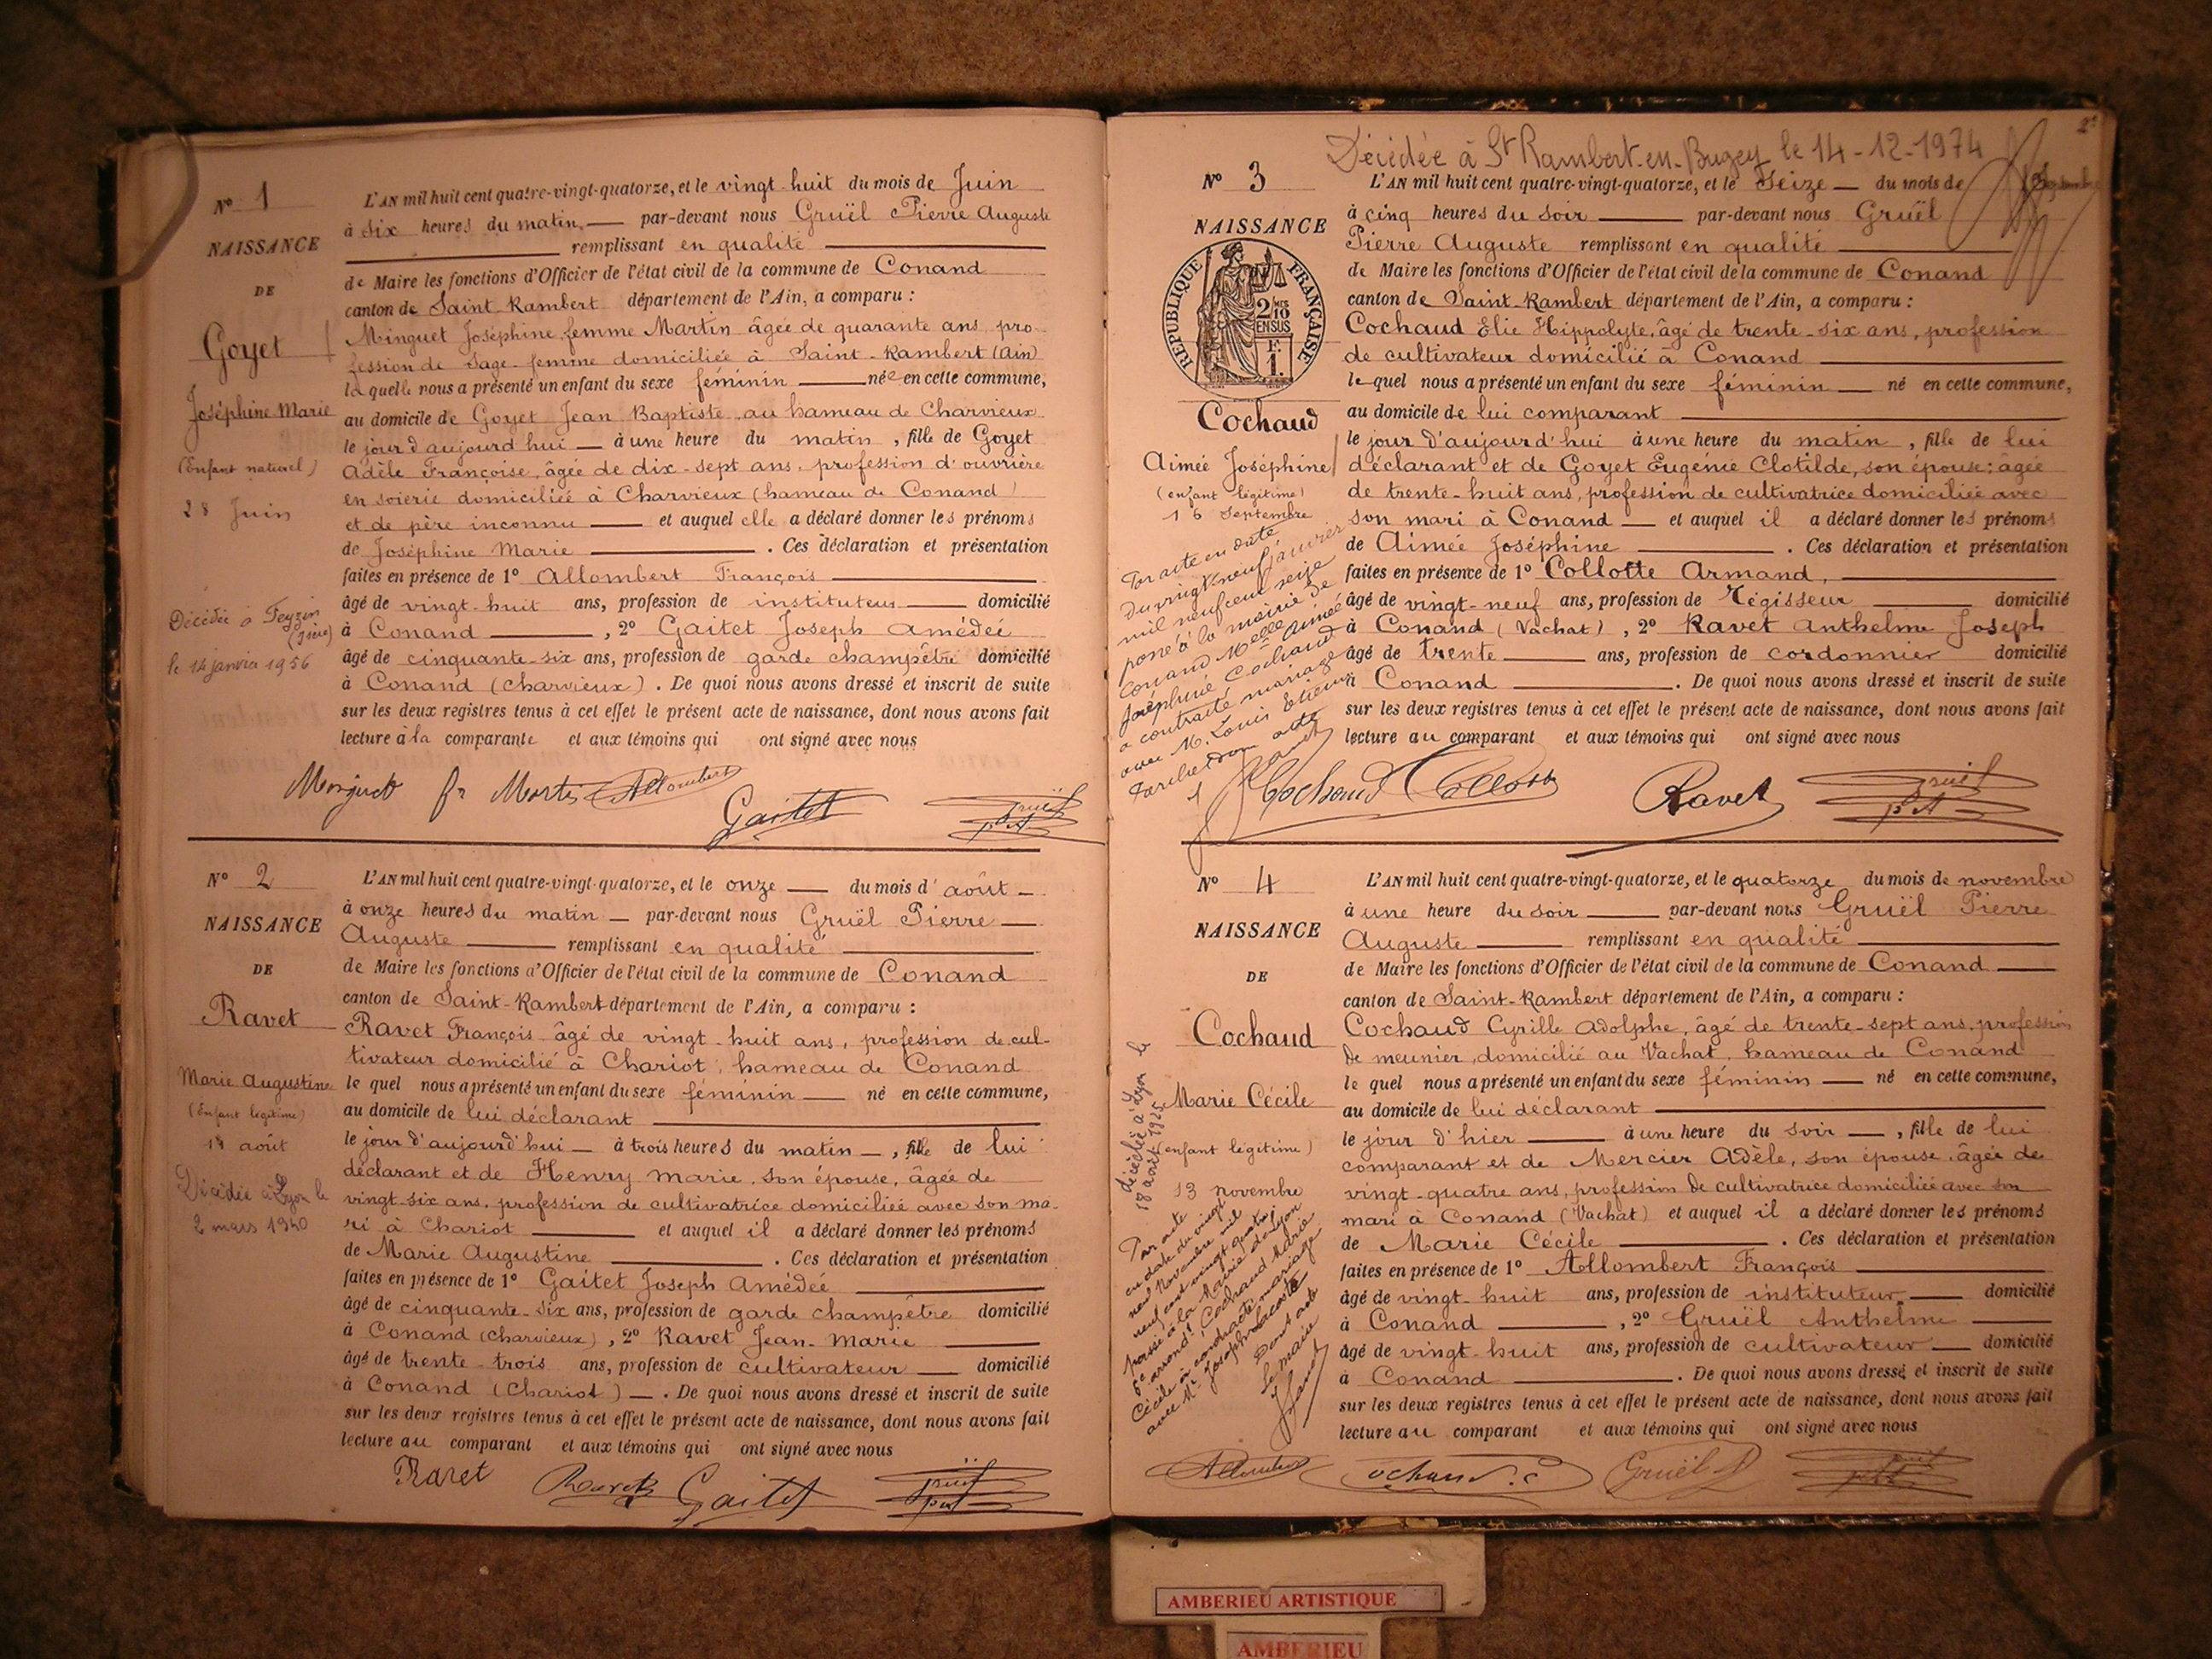 N° 1
NAISSANCE
DE
Goyet
Joséphine Marie
(Enfant naturel)
28 Juin
Décédée à Feyzin
(Isère)
le 14 janvier 1956
L'AN mil huit cent quatre-vingt-quatorze, et le vingt-huit du mois de Juin
à six heures du matin, par-devant nous Gruël Pierre Auguste
remplissant en qualité
de Maire les fonctions d'Officier de l'état civil de la commune de Conand
canton de Saint-Rambert département de l'Ain, a comparu :
Minguet Joséphine femme Martin âgée de quarante ans, pro-
fession de Sage-femme domiciliée à Saint-Rambert (Ain)
laquelle nous a présenté un enfant du sexe féminin née en cette commune,
au domicile de Goyet Jean Baptiste au hameau de Charvieux
le jour d'aujourd'hui à une heure du matin, fille de Goyet
Adèle Françoise, âgée de dix-sept ans, profession d'ouvrière
en soierie domiciliée à Charvieux (hameau de Conand)
et de père inconnu et auquel elle a déclaré donner les prénoms
de Joséphine Marie . Ces déclaration et présentation
faites en présence de 1° Allombert François
âgé de vingt-huit ans, profession de instituteur domicilié
à Conand , 2° Gaitet Joseph Amédée
âgé de cinquante-six ans, profession de garde champêtre domicilié
à Conand (Charvieux) . De quoi nous avons dressé et inscrit de suite
sur les deux registres tenus à cet effet le présent acte de naissance, dont nous avons fait
lecture à la comparante et aux témoins qui ont signé avec nous
Allombert
Gaitet
Gruël
N° 2
NAISSANCE
DE
Ravet
Marie Augustine
(Enfant légitime)
11 août
Décédée à Lyon le
2 mars 1940
L'AN mil huit cent quatre-vingt-quatorze, et le onze du mois d'août
à onze heures du matin par-devant nous Gruël Pierre
Auguste remplissant en qualité
de Maire les fonctions d'Officier de l'état civil de la commune de Conand
canton de Saint-Rambert département de l'Ain, a comparu :
Ravet François âgé de vingt-huit ans, profession de cul-
tivateur domicilié à Chariot, hameau de Conand
le quel nous a présenté un enfant du sexe féminin né en cette commune,
au domicile de lui déclarant
le jour d'aujourd'hui à trois heures du matin, fille de lui
déclarant et de Henry Marie, son épouse, âgée de
vingt-six ans, profession de cultivatrice domiciliée avec son ma-
ri à Chariot et auquel il a déclaré donner les prénoms
de Marie Augustine . Ces déclaration et présentation
faites en présence de 1° Gaitet Joseph Amédée
âgé de cinquante-six ans, profession de garde champêtre domicilié
à Conand (Charvieux), 2° Ravet Jean-Marie
âgé de trente-trois ans, profession de cultivateur domicilié
à Conand (Chariot) . De quoi nous avons dressé et inscrit de suite
sur les deux registres tenus à cet effet le présent acte de naissance, dont nous avons fait
lecture au comparant et aux témoins qui ont signé avec nous
Ravet
Ravet
Gaitet
Gruël
Décédée à St Rambert-en-Bugey le 14-12-1974
N° 3
NAISSANCE
RÉPUBLIQUE FRANÇAISE
2/10 EN SUS
F. 1.
Cochaud
Aimée Joséphine
(enfant légitime)
16 Septembre
Par acte en date
du vingt-neuf janvier
mil neuf cent seize
passé à la mairie de
Conand Melle Aimée
Joséphine Cochaud
a contracté mariage
avec M. Louis Etienne
L'AN mil huit cent quatre-vingt-quatorze, et le seize du mois de Septembre
à cinq heures du soir par-devant nous Gruël
Pierre Auguste remplissant en qualité
de Maire les fonctions d'Officier de l'état civil de la commune de Conand
canton de Saint-Rambert département de l'Ain, a comparu :
Cochaud Elie Hippolyte, âgé de trente-six ans, profession
de cultivateur domicilié à Conand
le quel nous a présenté un enfant du sexe féminin né en cette commune,
au domicile de lui comparant
le jour d'aujourd'hui à une heure du matin, fille de lui
déclarant et de Goyet Eugénie Clotilde, son épouse; âgée
de trente-huit ans, profession de cultivatrice domiciliée avec
son mari à Conand et auquel il a déclaré donner les prénoms
de Aimée Joséphine . Ces déclaration et présentation
faites en présence de 1° Collotte Armand,
âgé de vingt-neuf ans, profession de Régisseur domicilié
à Conand (Vachat), 2° Ravet Anthelme Joseph
âgé de trente ans, profession de cordonnier domicilié
à Conand . De quoi nous avons dressé et inscrit de suite
sur les deux registres tenus à cet effet le présent acte de naissance, dont nous avons fait
lecture au comparant et aux témoins qui ont signé avec nous
Cochaud
Ravet
Gruël
N° 4
NAISSANCE
DE
Cochaud
Marie Cécile
(enfant légitime)
13 novembre
décédée à Lyon le
Par acte
en date du vingt
neuf novembre mil
neuf cent vingt quatre
passé à la Mairie de Lyon
6e arrond. Cochaud Marie
Cécile a contracté mariage
avec Mr. Joseph Lacoste
Dont acte
Le maire
L'AN mil huit cent quatre-vingt-quatorze, et le quatorze du mois de novembre
à une heure du soir par-devant nous Gruël Pierre
Auguste remplissant en qualité
de Maire les fonctions d'Officier de l'état civil de la commune de Conand
canton de Saint-Rambert département de l'Ain, a comparu :
Cochaud Cyrille Adolphe, âgé de trente-sept ans, profession
de meunier, domicilié au Vachat, hameau de Conand
le quel nous a présenté un enfant du sexe féminin né en cette commune,
au domicile de lui déclarant
le jour d'hier à une heure du soir, fille de lui
comparant et de Mercier Adèle, son épouse, âgée de
vingt-quatre ans, profession de cultivatrice domiciliée avec son
mari à Conand (Vachat) et auquel il a déclaré donner les prénoms
de Marie Cécile . Ces déclaration et présentation
faites en présence de 1° Allombert François
âgé de vingt-huit ans, profession de instituteur domicilié
à Conand , 2° Gruël Anthelme
âgé de vingt-huit ans, profession de cultivateur domicilié
à Conand . De quoi nous avons dressé et inscrit de suite
sur les deux registres tenus à cet effet le présent acte de naissance, dont nous avons fait
lecture au comparant et aux témoins qui ont signé avec nous
Allombert
Cochaud. C
Gruël
AMBERIEU ARTISTIQUE
AMBERIEU